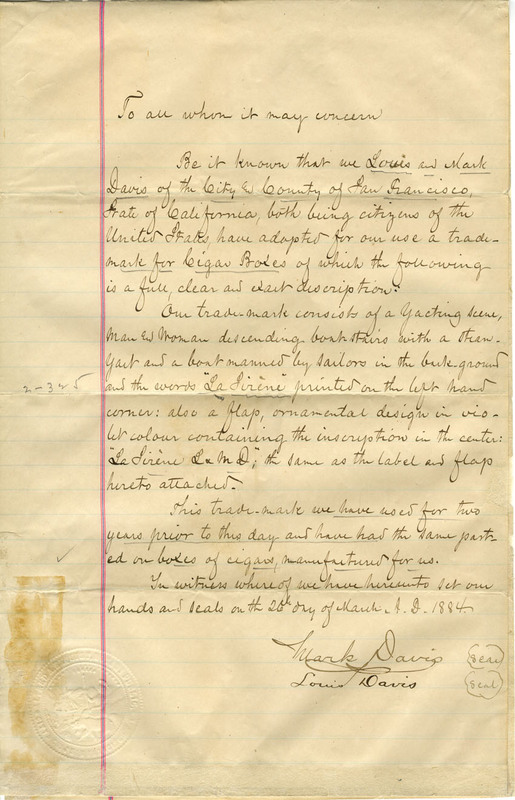 To all whom it may concern
Be it known that we Louis and Mark
Davis of the City & County of San Francisco,
State of California, both being citizens of the
United States, have adopted for our use a trade-
mark for Cigar Boxes of which the following
is a full, clear and exact description:
Our trade-mark consists of a Yacting Scene,
Man & Woman descending boat stairs with a steam-
Yatt and a boat manned by sailors in the back-ground
2-325
and the words "La Sirène" printed on the left hand
corner: also a flap, ornamental design in vio-
let colour containing the inscription in the center:
"La Sirène L & M D", the same as the label and flap
hereto attached.
This trade-mark we have used for two
years prior to this day and have had the same past-
ed on boxes of cigars, manufactured for us.
In witness whereof we have hereunto set our
hands and seals on the day of March, A. D. 1884.
Mark Davis seal
Louis Davis seal